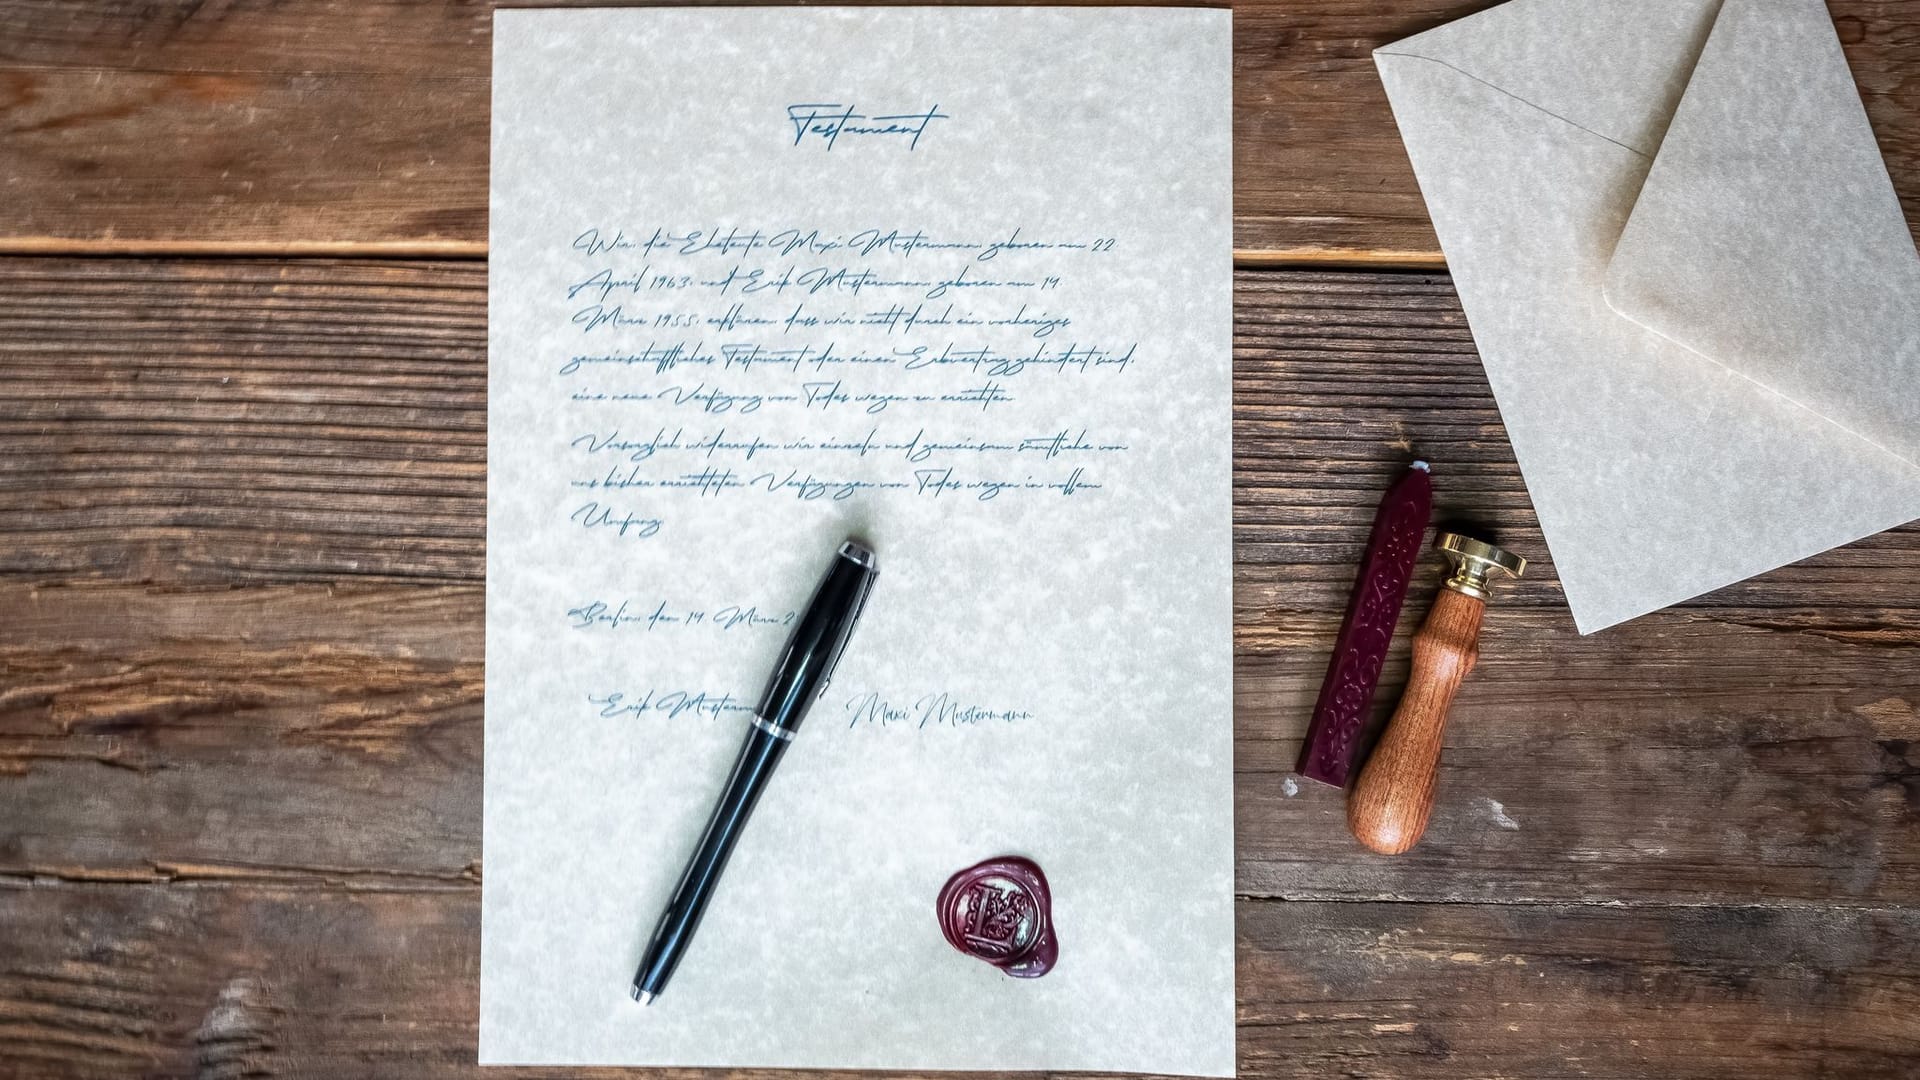 Testament
Wir, die Eheleute Maxi Mustermann, geboren am 22.
April 1963, und Erik Mustermann, geboren am 14.
März 1955, erklären, dass wir nicht durch ein vorheriges
gemeinschaftliches Testament oder einen Erbvertrag gehindert sind,
eine neue Verfügung von Todes wegen zu errichten.
Vorsorglich widerrufen wir einzeln und gemeinsam sämtliche von
uns bisher errichteten Verfügungen von Todes wegen in vollem
Umfang.
Berlin, den 14. März 2
Erik Musterm Maxi Mustermann